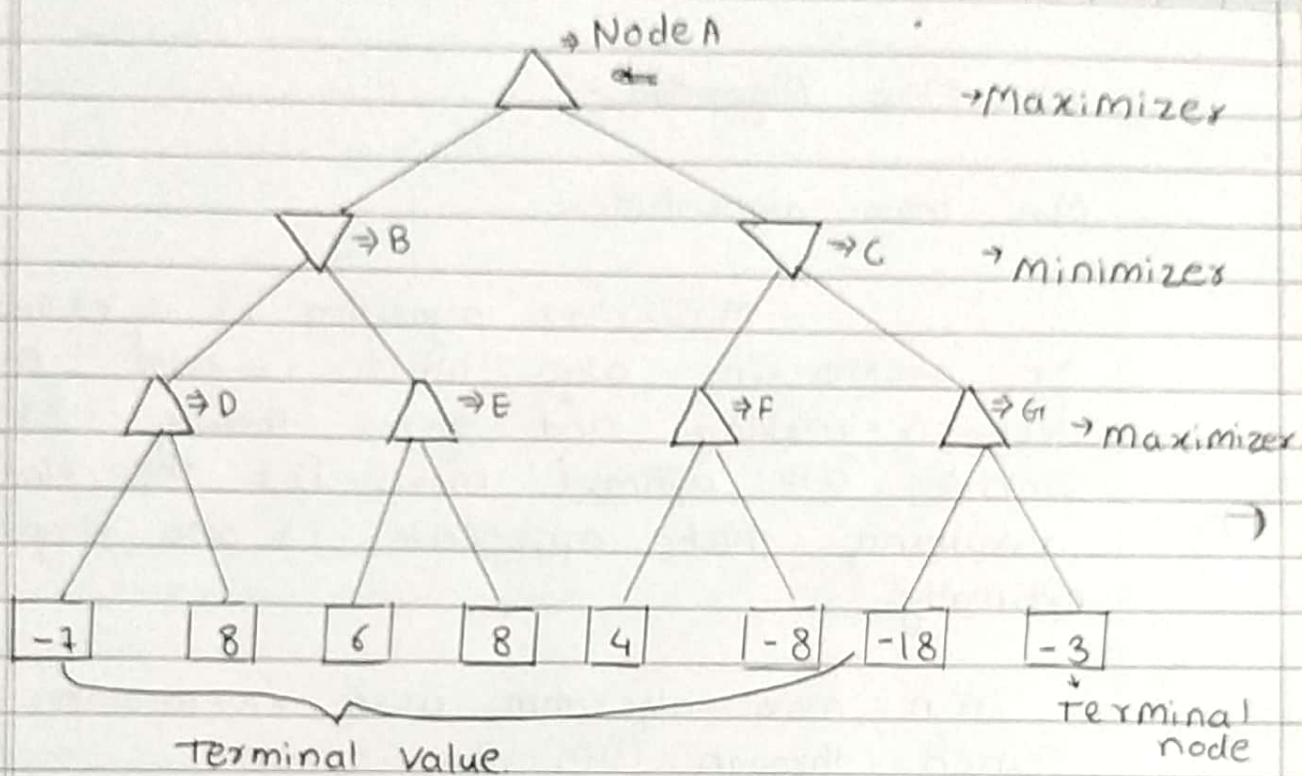 ⇒ Node A
→ Maximizer
⇒ B
→ C
→ Minimizer
⇒ D
⇒ E
⇒ F
⇒ G
→ Maximizer
-7 8 6 8 4 -8 -18 -3
Terminal value
Terminal
node